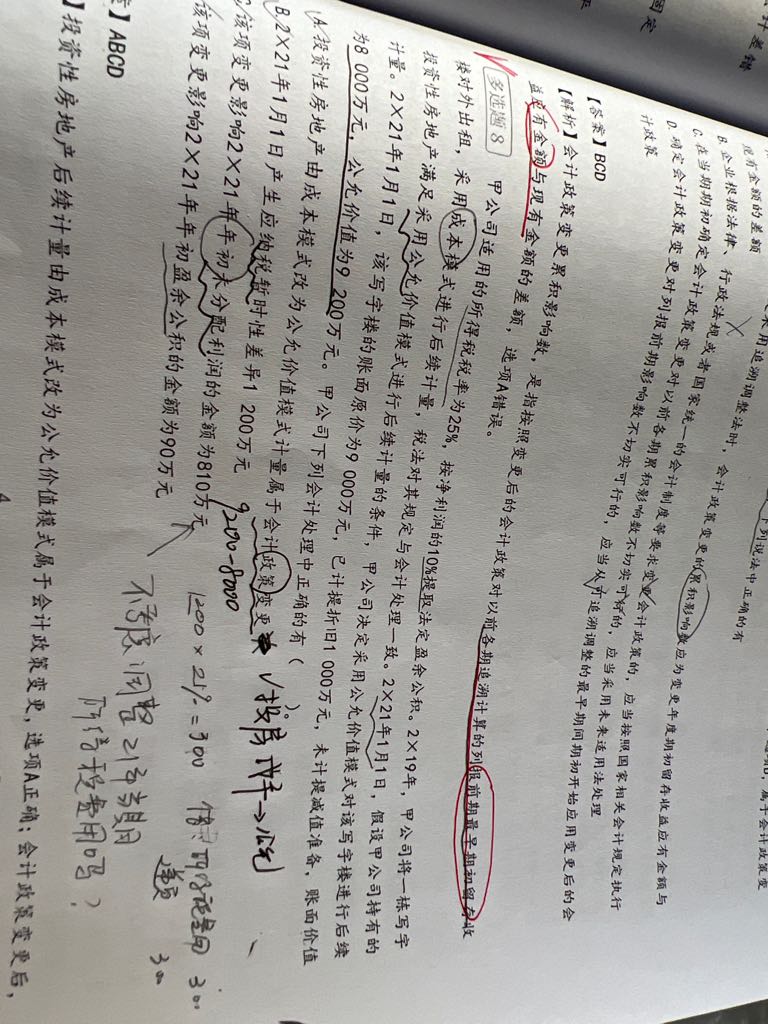 定采用追溯调整法时，会计政策变更的累积影响数应为变更年度期初留存收益应有金额与
现有金额的差额
B. 企业根据法律、行政法规或者国家统一的会计制度等要求变更会计政策的，应当按照国家相关会计规定执行
C. 在当期期初确定会计政策变更对以前各期累积影响数不切实可行的，应当采用未来适用法处理
D. 确定会计政策变更对列报前期影响数不切实可行的，应当从可追溯调整的最早期间期初开始应用变更后的会
计政策
【答案】BCD
【解析】会计政策变更累积影响数，是指按照变更后的会计政策对以前各期追溯计算的列报前期最早期初留存收
益应有金额与现有金额的差额，选项A错误。
多选题8 甲公司适用的所得税税率为25%，按净利润的10%提取法定盈余公积。2×19年，甲公司将一栋写字
楼对外出租，采用成本模式进行后续计量，税法对其规定与会计处理一致。2×21年1月1日，假设甲公司持有的
投资性房地产满足采用公允价值模式进行后续计量的条件，甲公司决定采用公允价值模式对该写字楼进行后续
计量。2×21年1月1日，该写字楼的账面原价为9 000万元，已计提折旧1 000万元，未计提减值准备，账面价值
为8 000万元，公允价值为9 200万元。甲公司下列会计处理中正确的有（ ）。
A. 投资性房地产由成本模式改为公允价值模式计量属于会计政策变更 √投房 成本→公允
B. 2×21年1月1日产生应纳税暂时性差异1 200万元 9200-8000
C. 该项变更影响2×21年年初未分配利润的金额为810万元 1200×25%=300
D. 该项变更影响2×21年年初盈余公积的金额为90万元
不考虑调整21年当期
所得税费用吗？
【答案】ABCD
【解析】投资性房地产后续计量由成本模式改为公允价值模式属于会计政策变更，选项A正确；会计政策变更后，